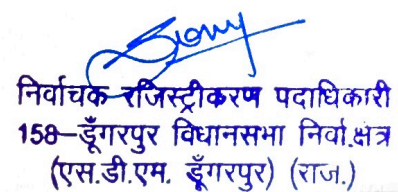 निर्वाचक रजिस्ट्रीकरण पदाधिकारी
158–डूँगरपुर विधानसभा निर्वा.क्षेत्र
(एस.डी.एम. डूँगरपुर) (राज.)